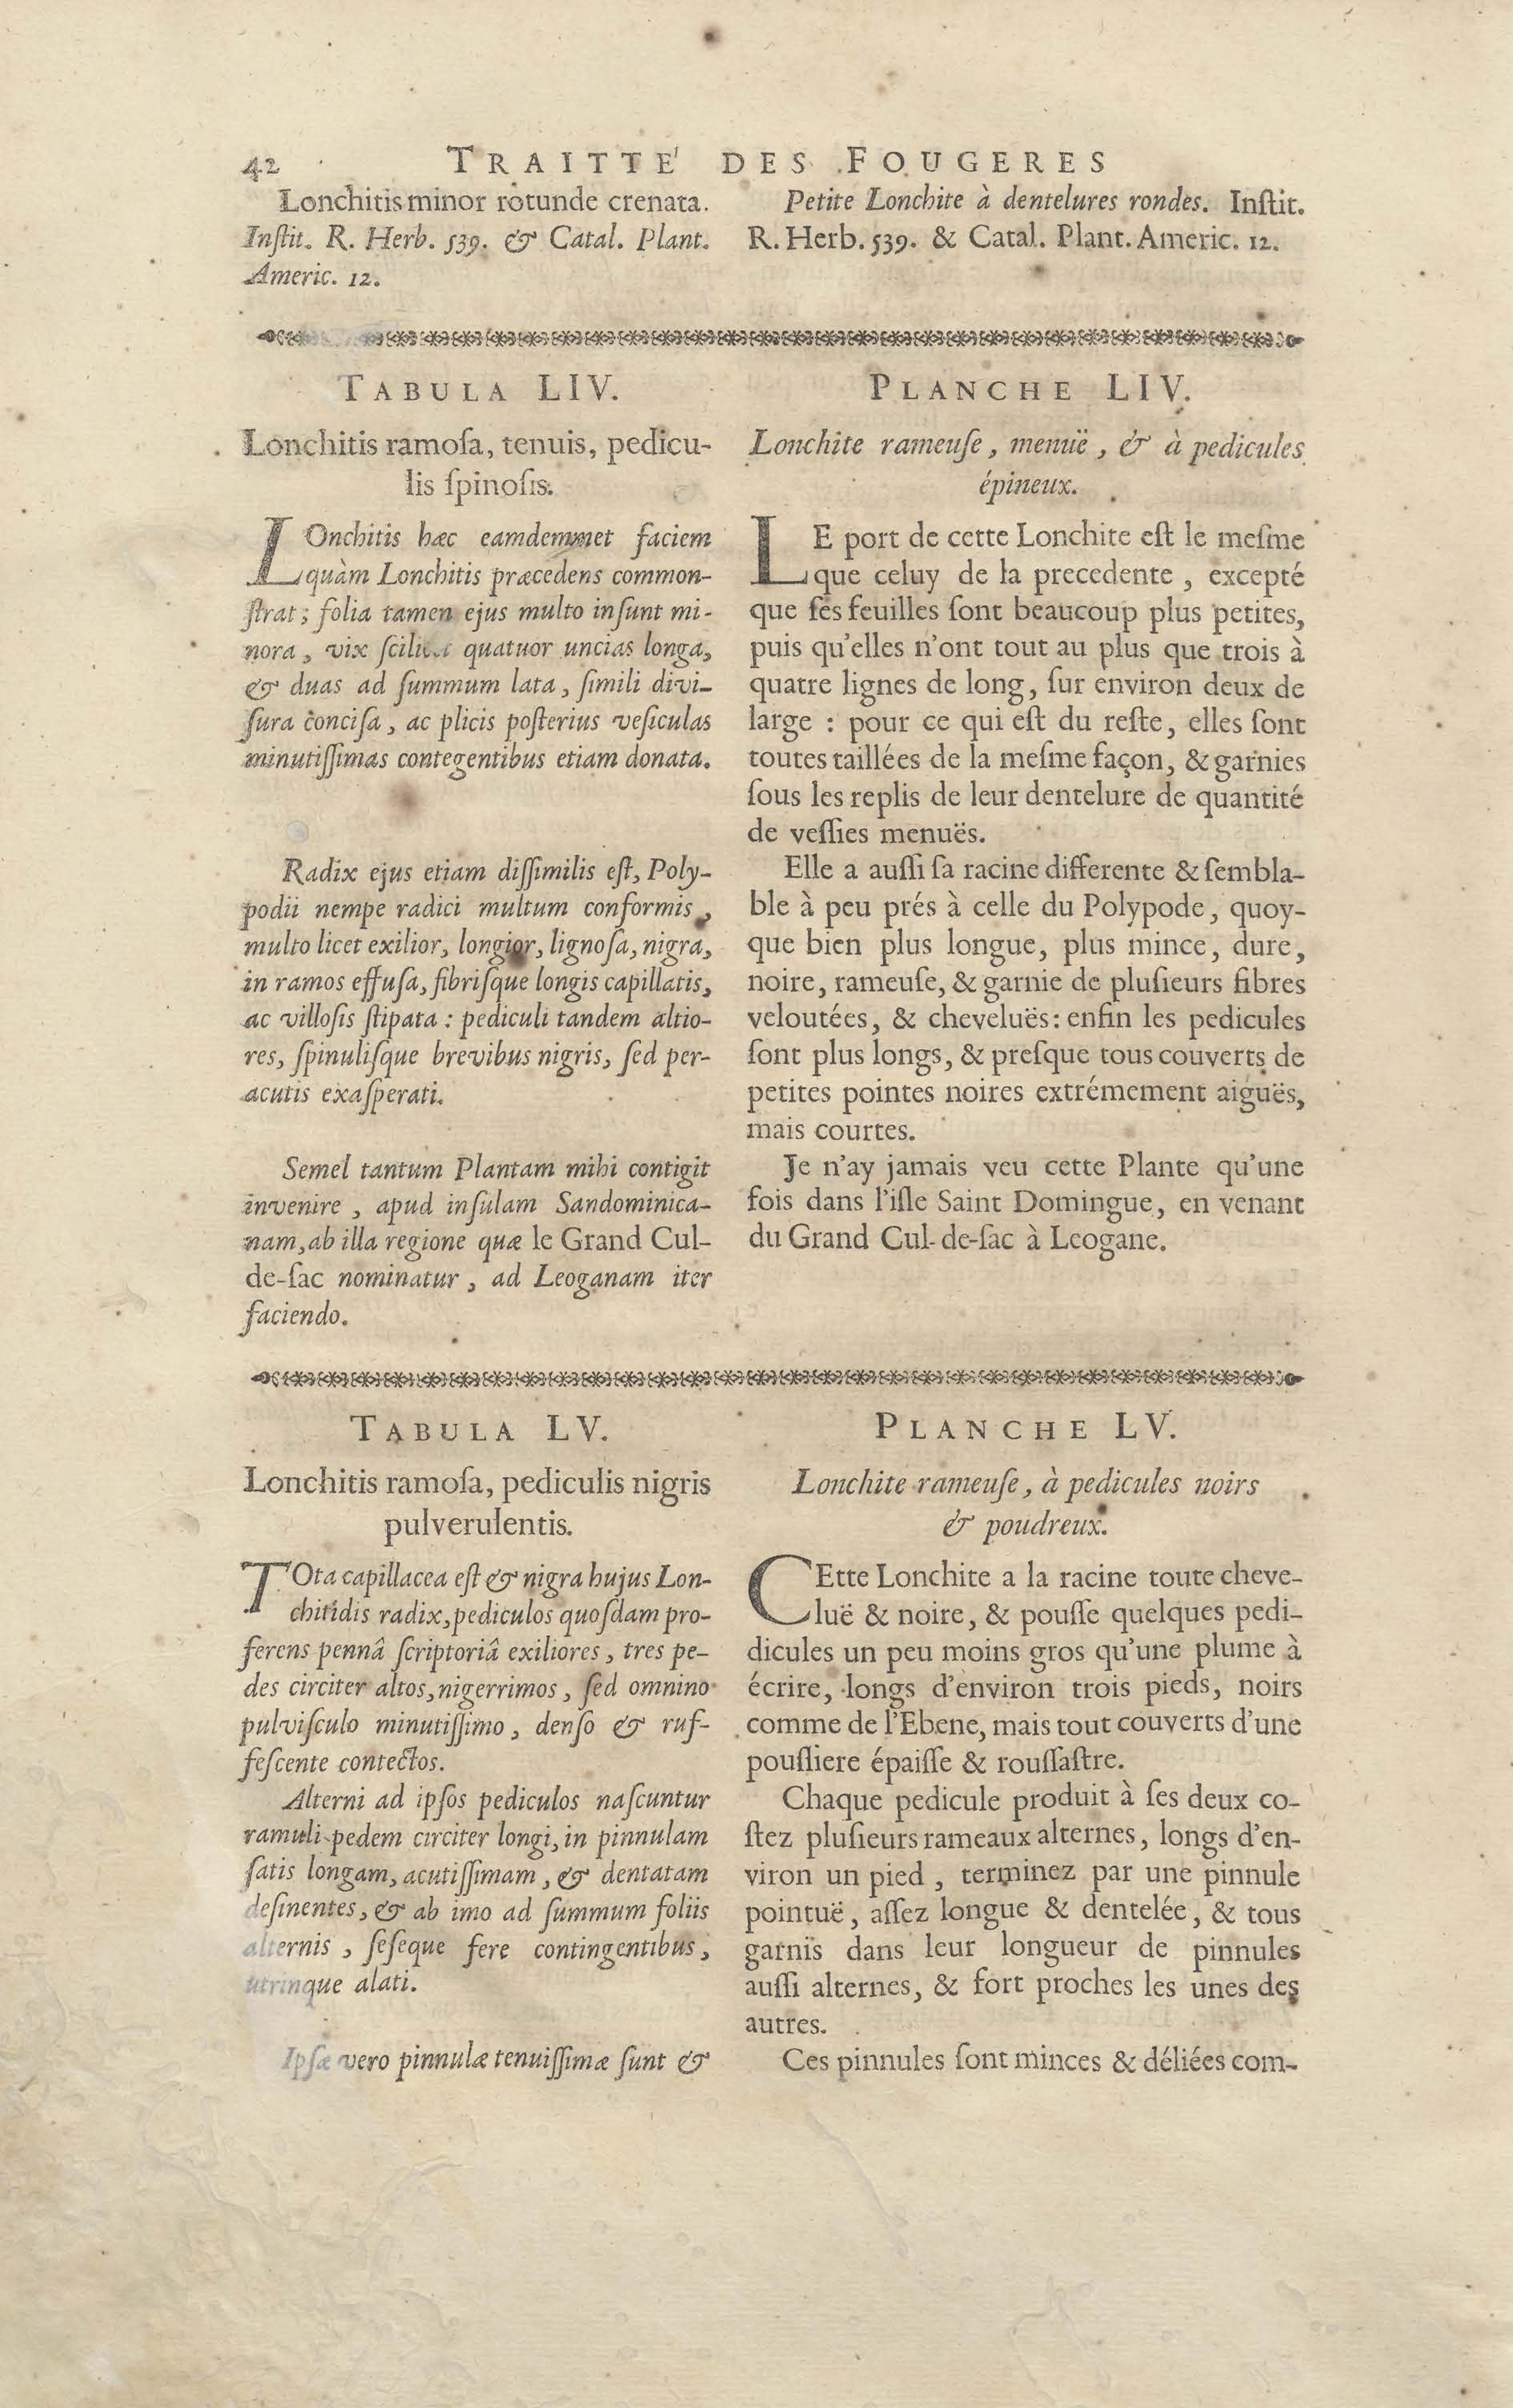 42 TRAITTE' DES FOUGERES
Lonchitis minor rotunde crenata.
Inſtit. R. Herb. 539. & Catal. Plant.
Americ. 12.
Petite Lonchite à dentelures rondes. Inſtit.
R. Herb. 539. & Catal. Plant. Americ. 12.
TABULA LIV.
Lonchitis ramoſa, tenuis, pedicu-
lis ſpinoſis.
LOnchitis hæc eamdemmet faciem
quàm Lonchitis præcedens common-
ſtrat; folia tamen ejus multo inſunt mi-
nora, vix ſcilicet quatuor uncias longa,
& duas ad ſummum lata, ſimili divi-
ſura conciſa, ac plicis poſterius veſiculas
minutiſſimas contegentibus etiam donata.
Radix ejus etiam diſſimilis eſt, Poly-
podii nempe radici multum conformis,
multo licet exilior, longior, lignoſa, nigra,
in ramos effuſa, fibriſque longis capillatis,
ac villoſis ſtipata: pediculi tandem altio-
res, ſpinuliſque brevibus nigris, ſed per-
acutis exaſperati.
Semel tantum Plantam mihi contigit
invenire, apud inſulam Sandominica-
nam, ab illa regione quæ le Grand Cul-
de-ſac nominatur, ad Leoganam iter
faciendo.
PLANCHE LIV.
Lonchite rameuſe, menuë, & à pedicules
épineux.
LE port de cette Lonchite eſt le meſme
que celuy de la precedente, excepté
que ſes feuilles ſont beaucoup plus petites,
puis qu'elles n'ont tout au plus que trois à
quatre lignes de long, ſur environ deux de
large: pour ce qui eſt du reſte, elles ſont
toutes taillées de la meſme façon, & garnies
ſous les replis de leur dentelure de quantité
de veſſies menuës.
Elle a auſſi ſa racine differente & ſembla-
ble à peu prés à celle du Polypode, quoy-
que bien plus longue, plus mince, dure,
noire, rameuſe, & garnie de pluſieurs fibres
veloutées, & cheveluës: enfin les pedicules
ſont plus longs, & preſque tous couverts de
petites pointes noires extrémement aiguës,
mais courtes.
Je n'ay jamais veu cette Plante qu'une
fois dans l'iſle Saint Domingue, en venant
du Grand Cul-de-ſac à Leogane.
TABULA LV.
Lonchitis ramoſa, pediculis nigris
pulverulentis.
TOta capillacea eſt & nigra hujus Lon-
chitidis radix, pediculos quoſdam pro-
ferens pennâ ſcriptoriâ exiliores, tres pe-
des circiter altos, nigerrimos, ſed omnino
pulviſculo minutiſſimo, denſo & ruf-
feſcente contectos.
Alterni ad ipſos pediculos naſcuntur
ramuli pedem circiter longi, in pinnulam
ſatis longam, acutiſſimam, & dentatam
deſinentes, & ab imo ad ſummum foliis
alternis, ſeſeque fere contingentibus,
utrinque alati.
Ipſæ vero pinnulæ tenuiſſimæ ſunt &
PLANCHE LV.
Lonchite rameuſe, à pedicules noirs
& poudreux.
CEtte Lonchite a la racine toute cheve-
luë & noire, & pouſſe quelques pedi-
dicules un peu moins gros qu'une plume à
écrire, longs d'environ trois pieds, noirs
comme de l'Ebene, mais tout couverts d'une
pouſſiere épaiſſe & rouſſaſtre.
Chaque pedicule produit à ſes deux co-
ſtez pluſieurs rameaux alternes, longs d'en-
viron un pied, terminez par une pinnule
pointuë, aſſez longue & dentelée, & tous
garnis dans leur longueur de pinnules
auſſi alternes, & fort proches les unes des
autres.
Ces pinnules ſont minces & déliées com-